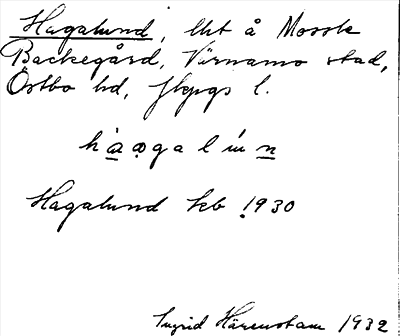 Hagalund, lht å Mossle
Backegård, Värnamo stad,
Östbo hd, Jkpgs l.
Hagalund kb 1930
Ingrid Härenstam 1932